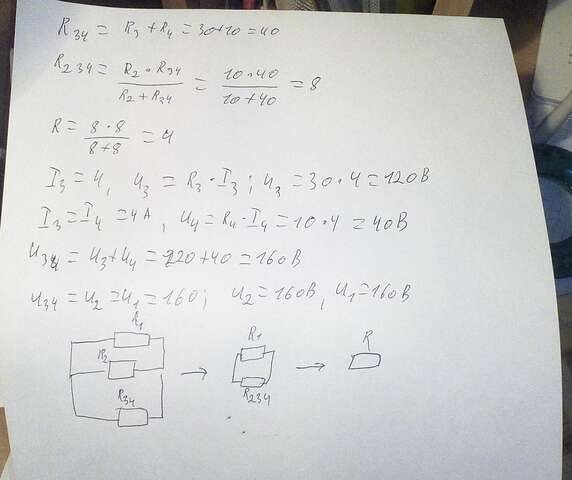 R34 = R3 + R4 = 30+10 = 40
R234 = R2 · R34 / R2 + R34 = 10 · 40 / 10 + 40 = 8
R = 8 · 8 / 8 + 8 = 4
I3 = 4, U3 = R3 · I3; U3 = 30 · 4 = 120В
I3 = I4 = 4А, U4 = R4 · I4 = 10 · 4 = 40В
U34 = U3 + U4 = 120 + 40 = 160В
U34 = U2 = U1 = 160; U2 = 160В, U1 = 160В
R1
R2
R34
R1
R234
R